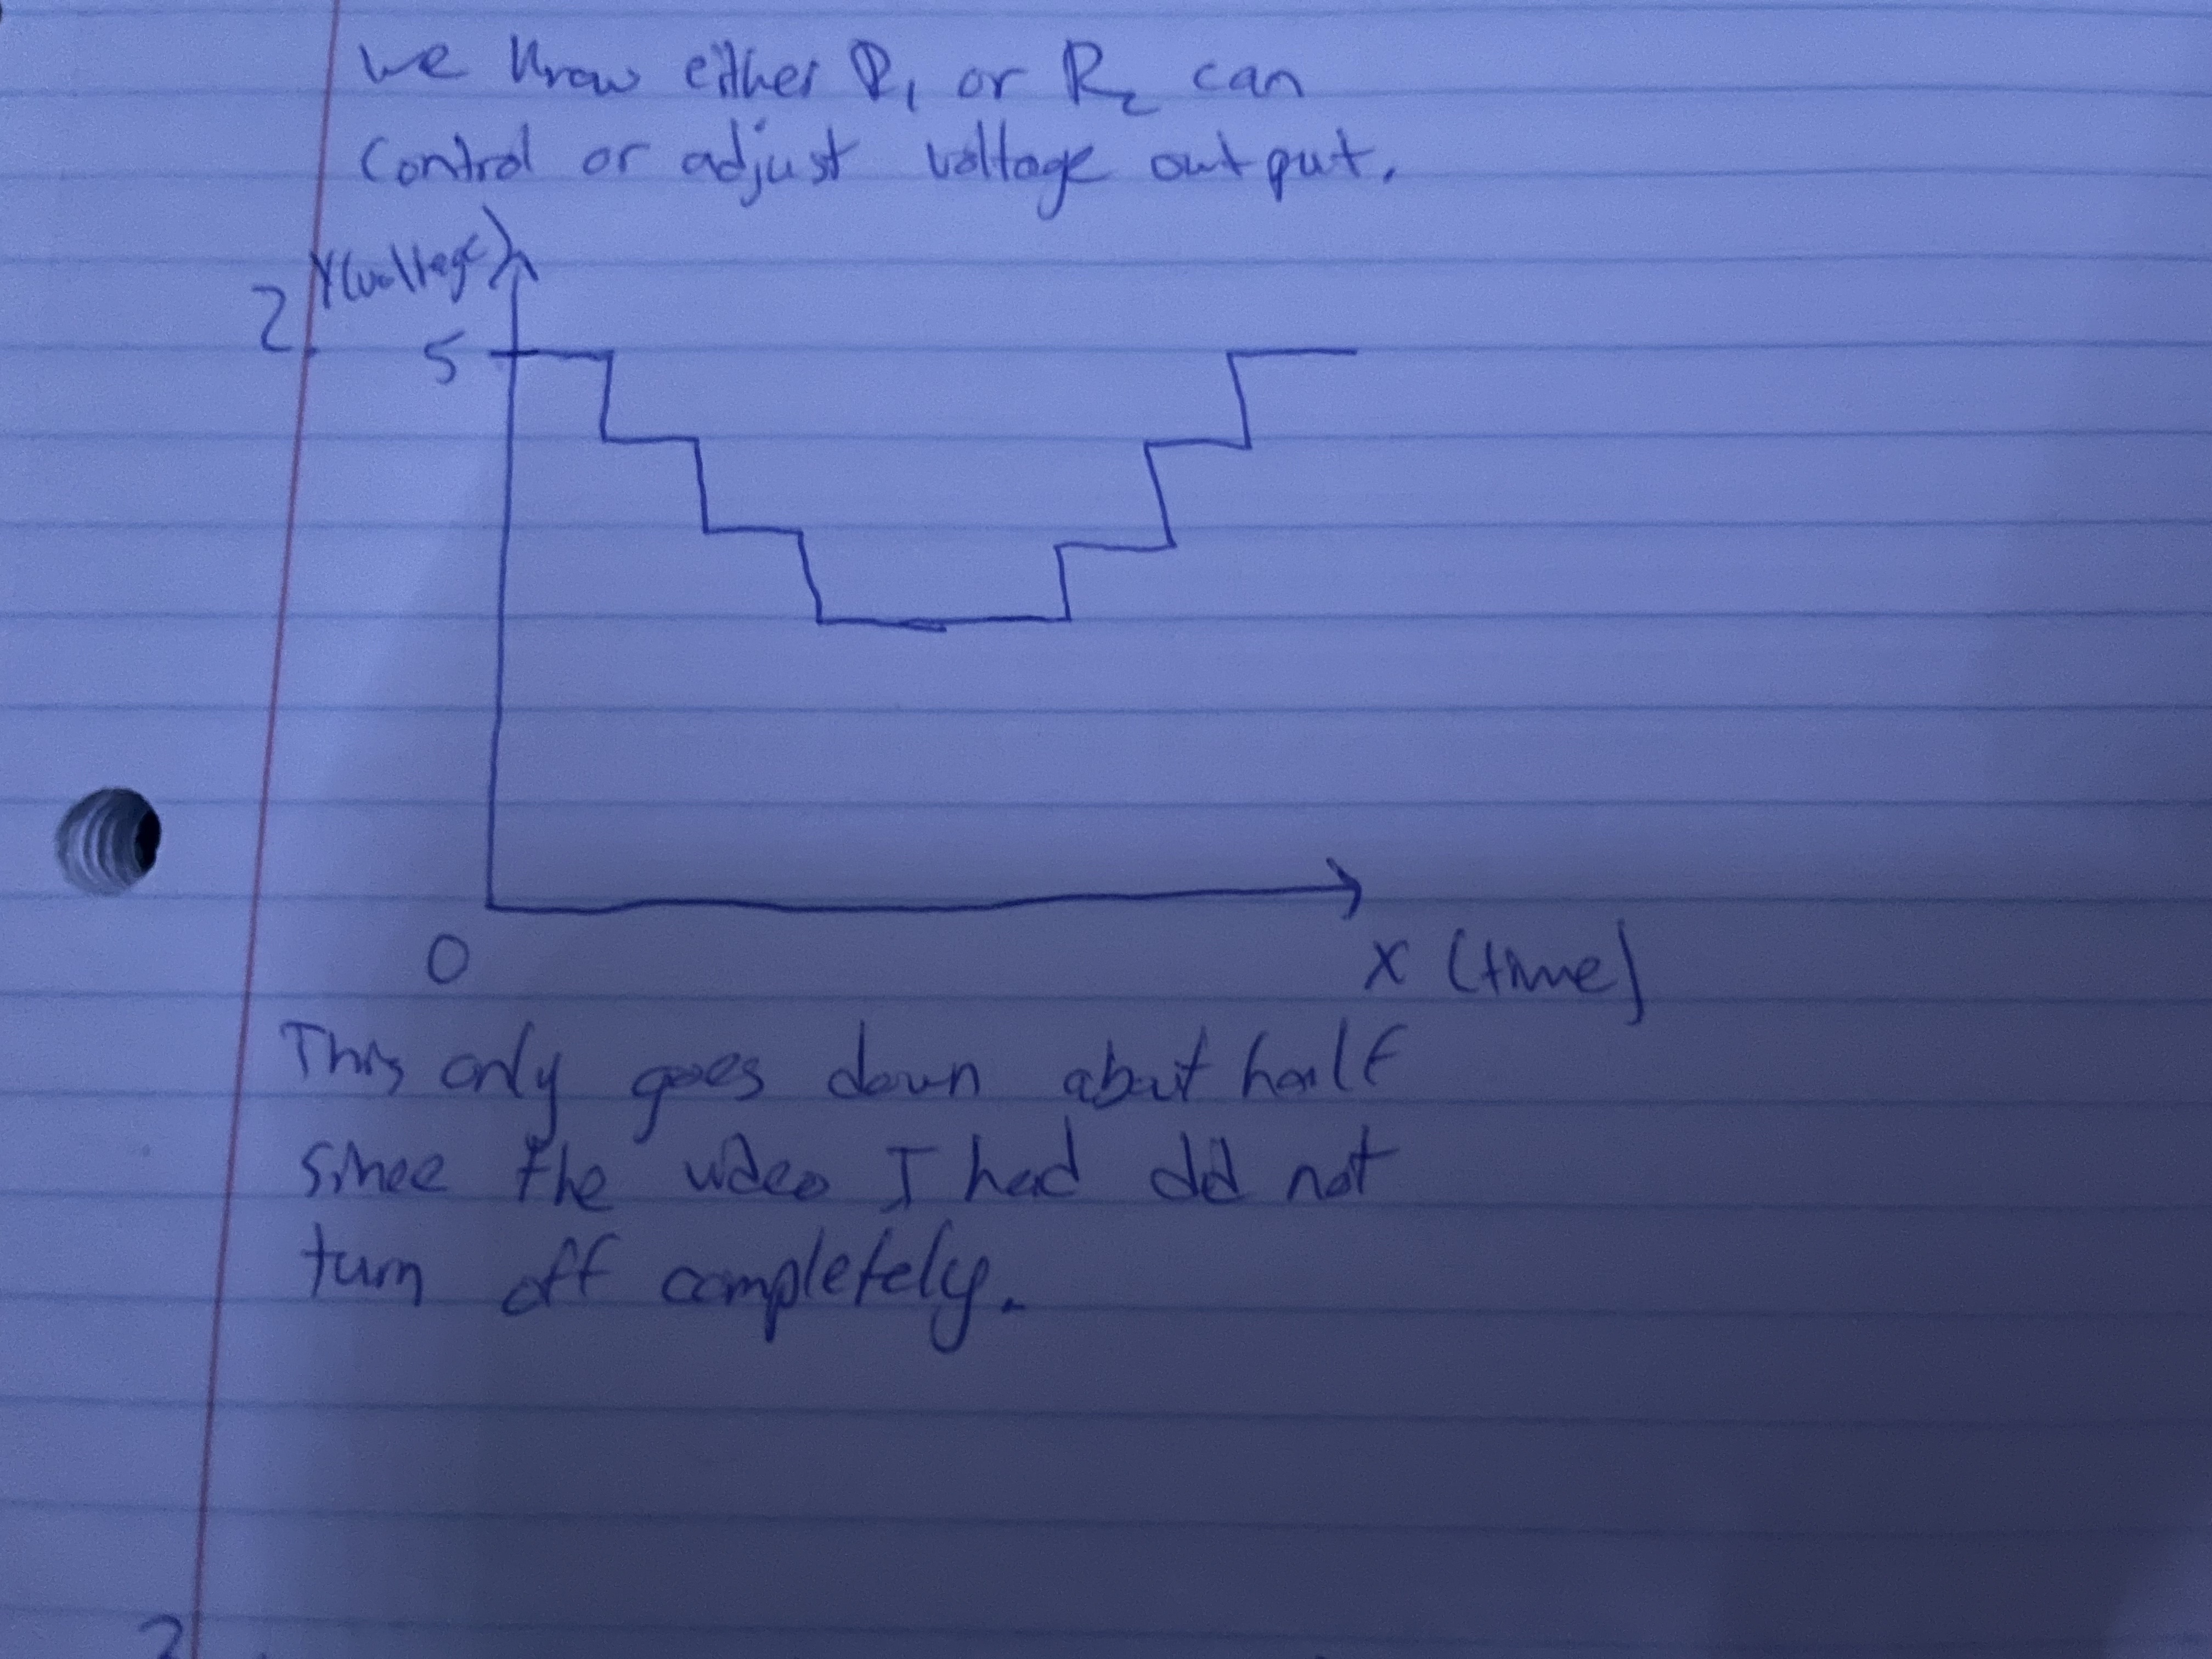 we know either R₁ or R₂ can
control or adjust voltage output.
Y(voltage)
2.
5
0
x (time)
This only goes down about half
since the video I had did not
turn off completely.